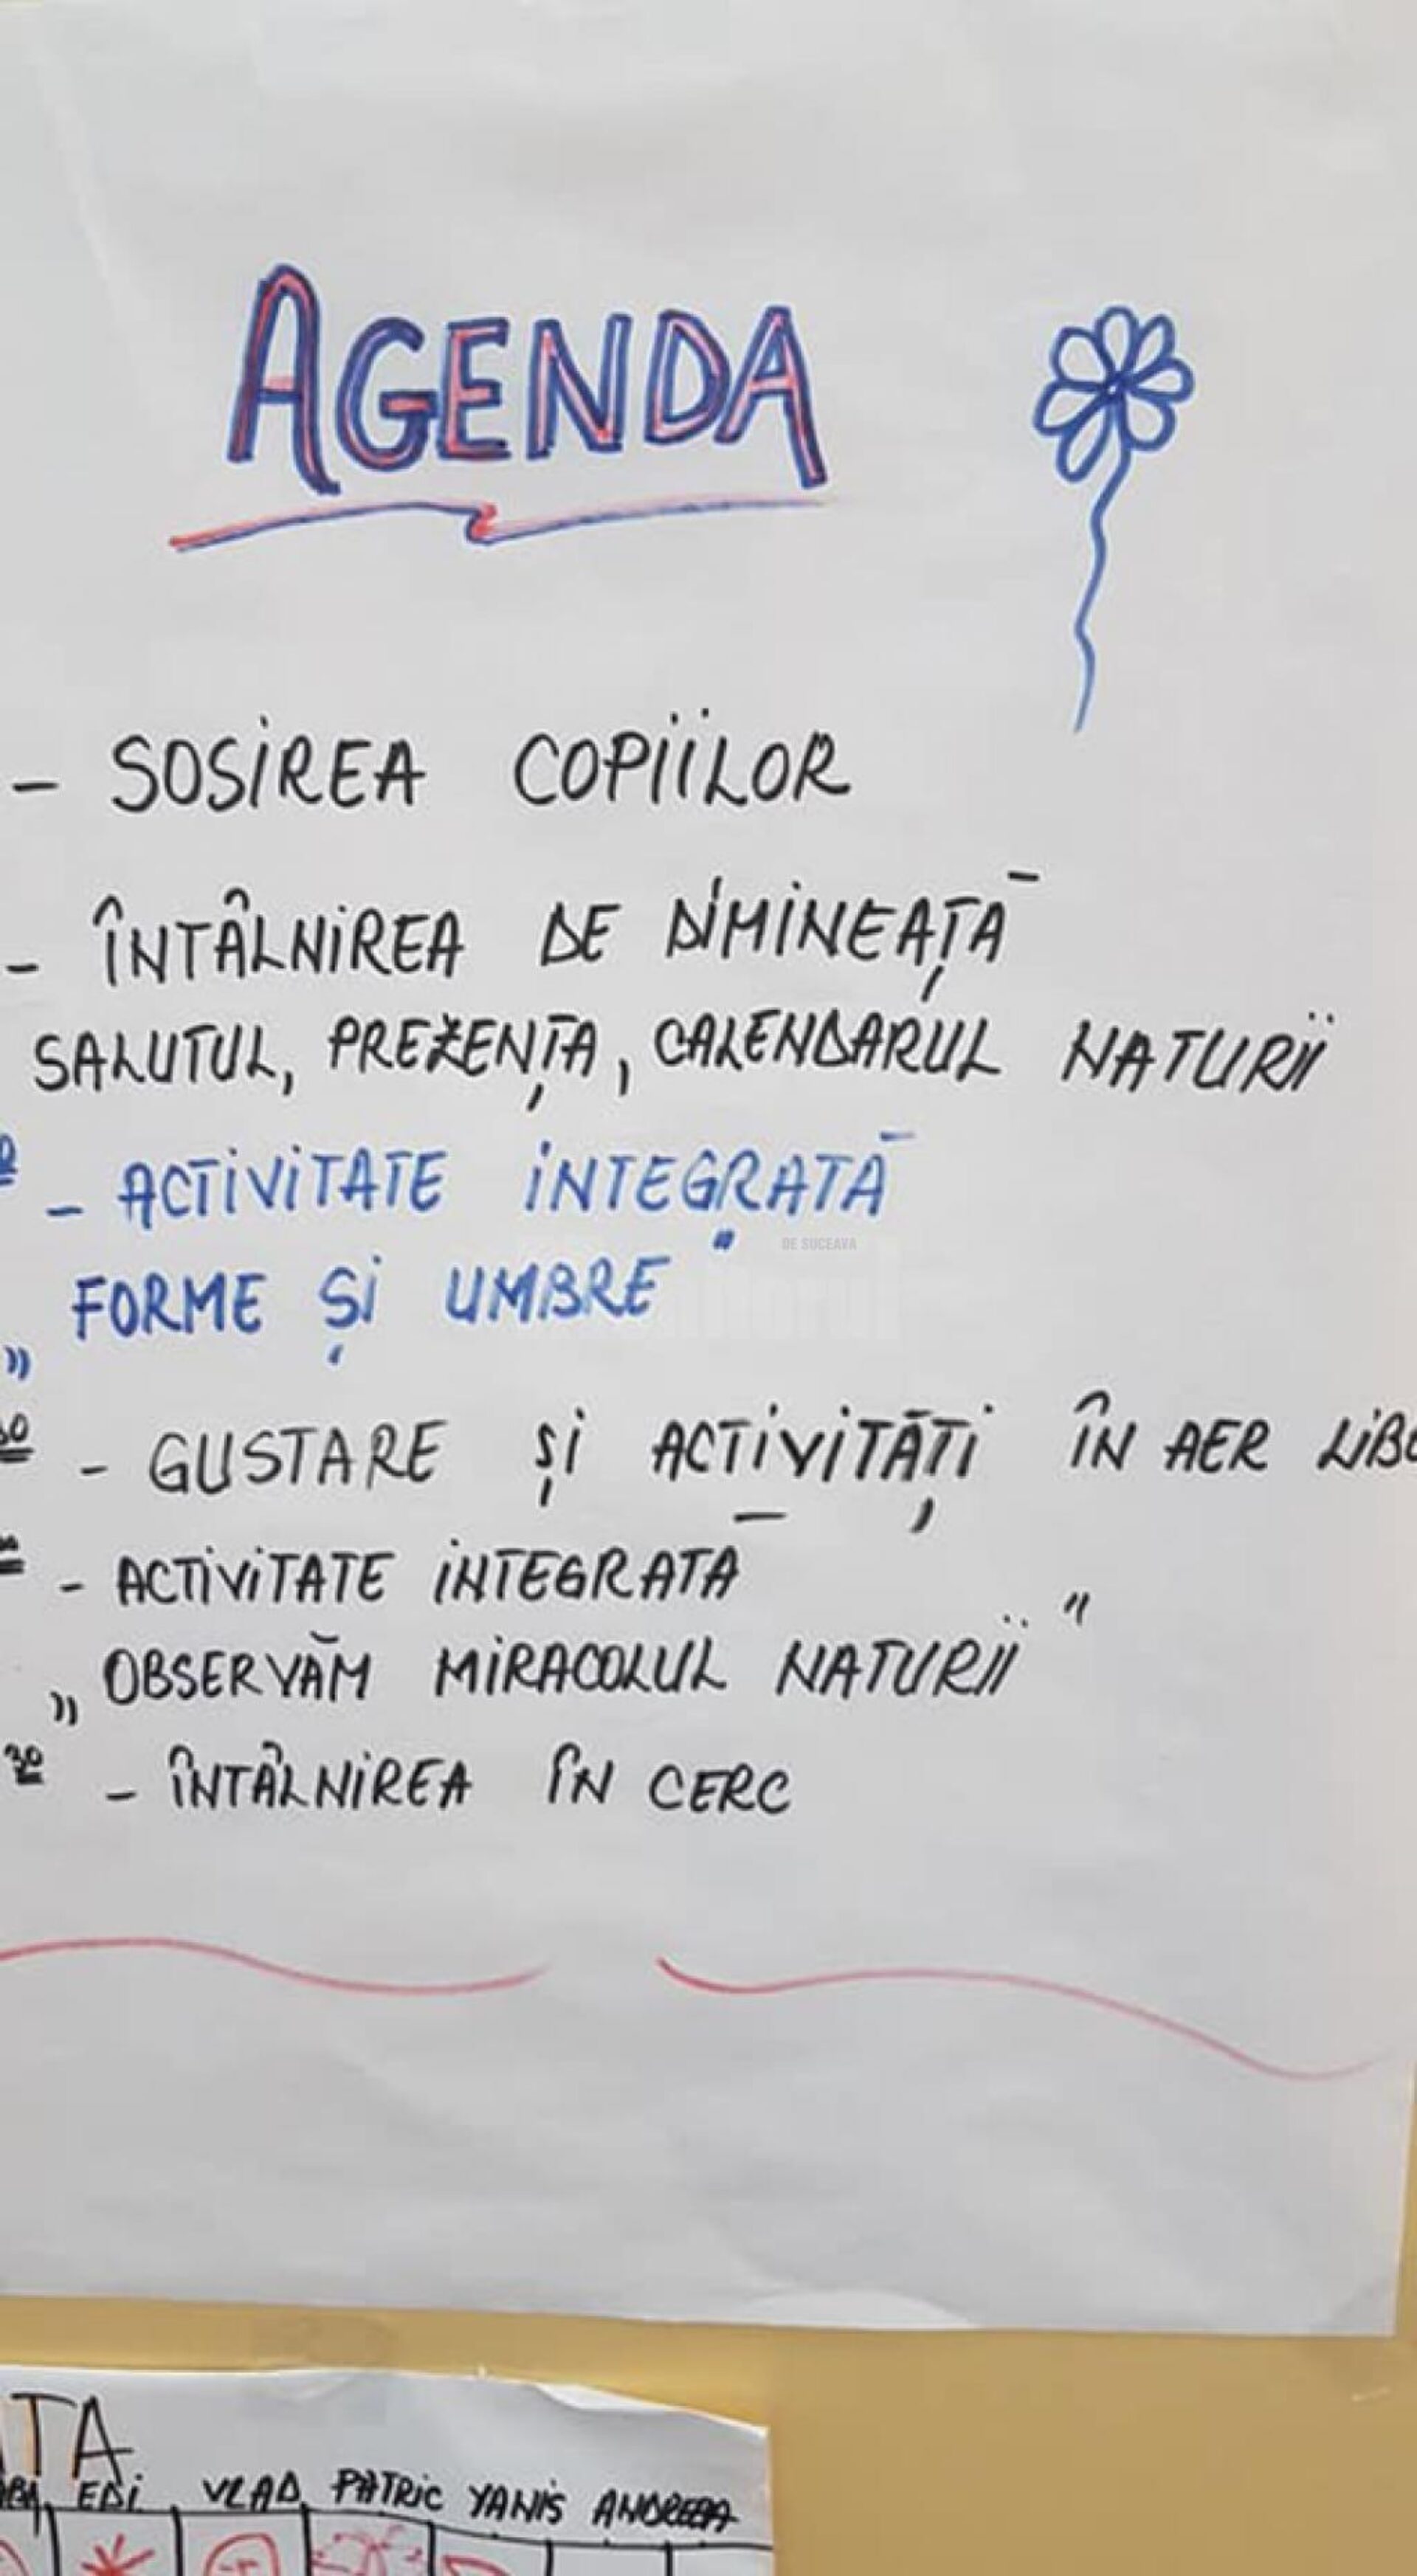 AGENDA
- SOSIREA COPIILOR
- ÎNTÂLNIREA DE DIMINEAȚĂ
SALUTUL, PREZENȚA, CALENDARUL NATURII
- ACTIVITATE INTEGRATĂ
„FORME ȘI UMBRE"
DE SUCEAVA
30 - GUSTARE ȘI ACTIVITĂȚI ÎN AER LIBE
- ACTIVITATE INTEGRATĂ
„OBSERVĂM MIRACOLUL NATURII"
30 - ÎNTÂLNIREA ÎN CERC
TA
EDI VLAD PATRIC YANIS ANDREEA